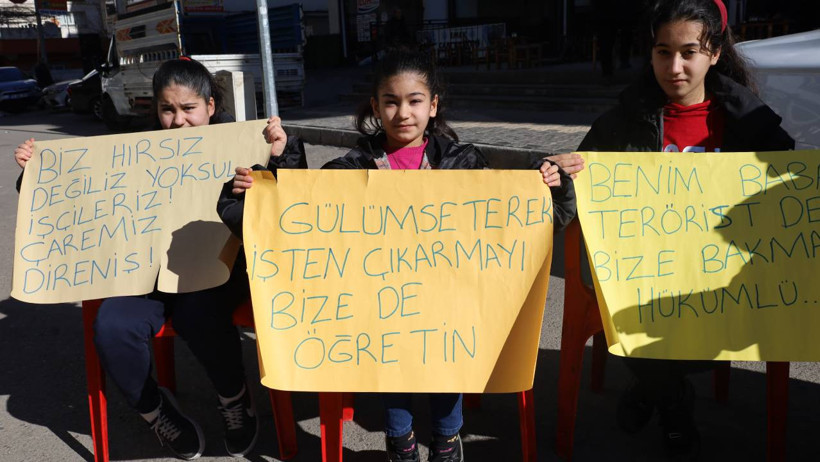 BİZ HIRSIZ
DEĞİLİZ YOKSUL
İŞÇİLERİZ!
ÇAREMİZ
DİRENİŞ!
GÜLÜMSETEREK
İŞTEN ÇIKARMAYI
BİZE DE
ÖĞRETİN
BENİM
TERÖRİST
BİZE
HÜKÜMLÜ...